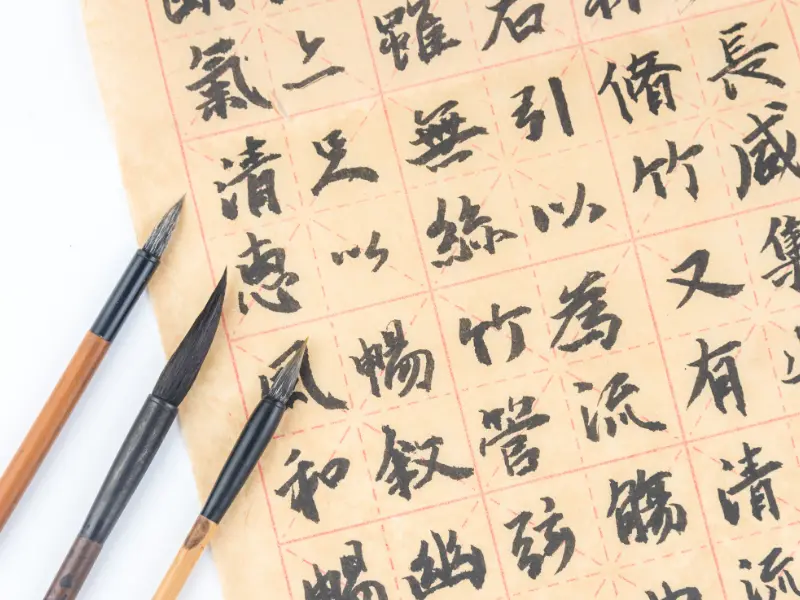 長咸集
脩竹又有清流
右引以為流觴
雖無絲竹管弦
足以暢敘幽
氣清惠風和暢